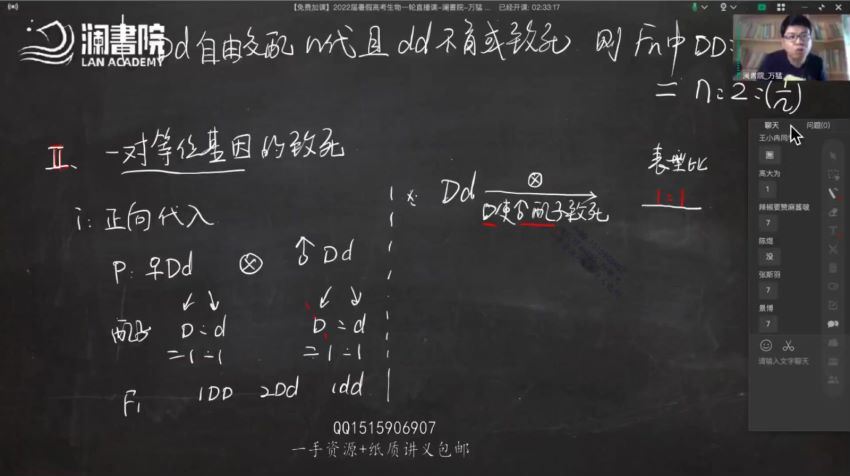 【免费加课】2022届暑假高考生物一轮直播课-澜書院-万猛 ... 已经开课: 02:33:17
澜書院
LAN ACADEMY
Dd自由交配n代且dd不育或致死 则Fn中DD:
= n:2:(1/n)
澜書院_万猛
聊天 问题(0)
王小冉同
圈
高大为
1
辣椒要赞麻酱啵
7
陈煜
没
张斯羽
7
景博
7
请输入文字聊天
II、一对等位基因的致死
i:正向代入
P:♀Dd ⊗ ♂Dd
配子 D:d D:d
=1:1 =1:1
F₁ 1DD 2Dd 1dd
Dd ⊗
D使♂配子致死
表型比
1:1
QQ1515906907
一手资源+纸质讲义包邮